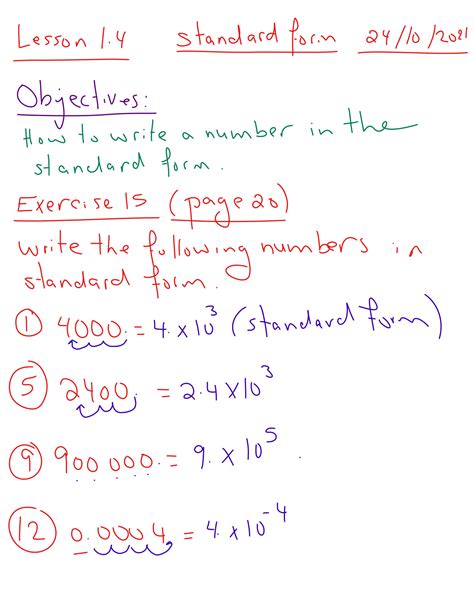 Lesson 1.4 standard form 24/10/2021
Objectives:
How to write a number in the
standard form.
Exercise 15 (page 20)
write the following numbers in
standard form.
① 4000. = 4. x 10³ (standard form)
⑤ 2400. = 2.4 x 10³
⑨ 900 000. = 9. x 10⁵.
⑫ 0.0004 = 4. x 10⁻⁴